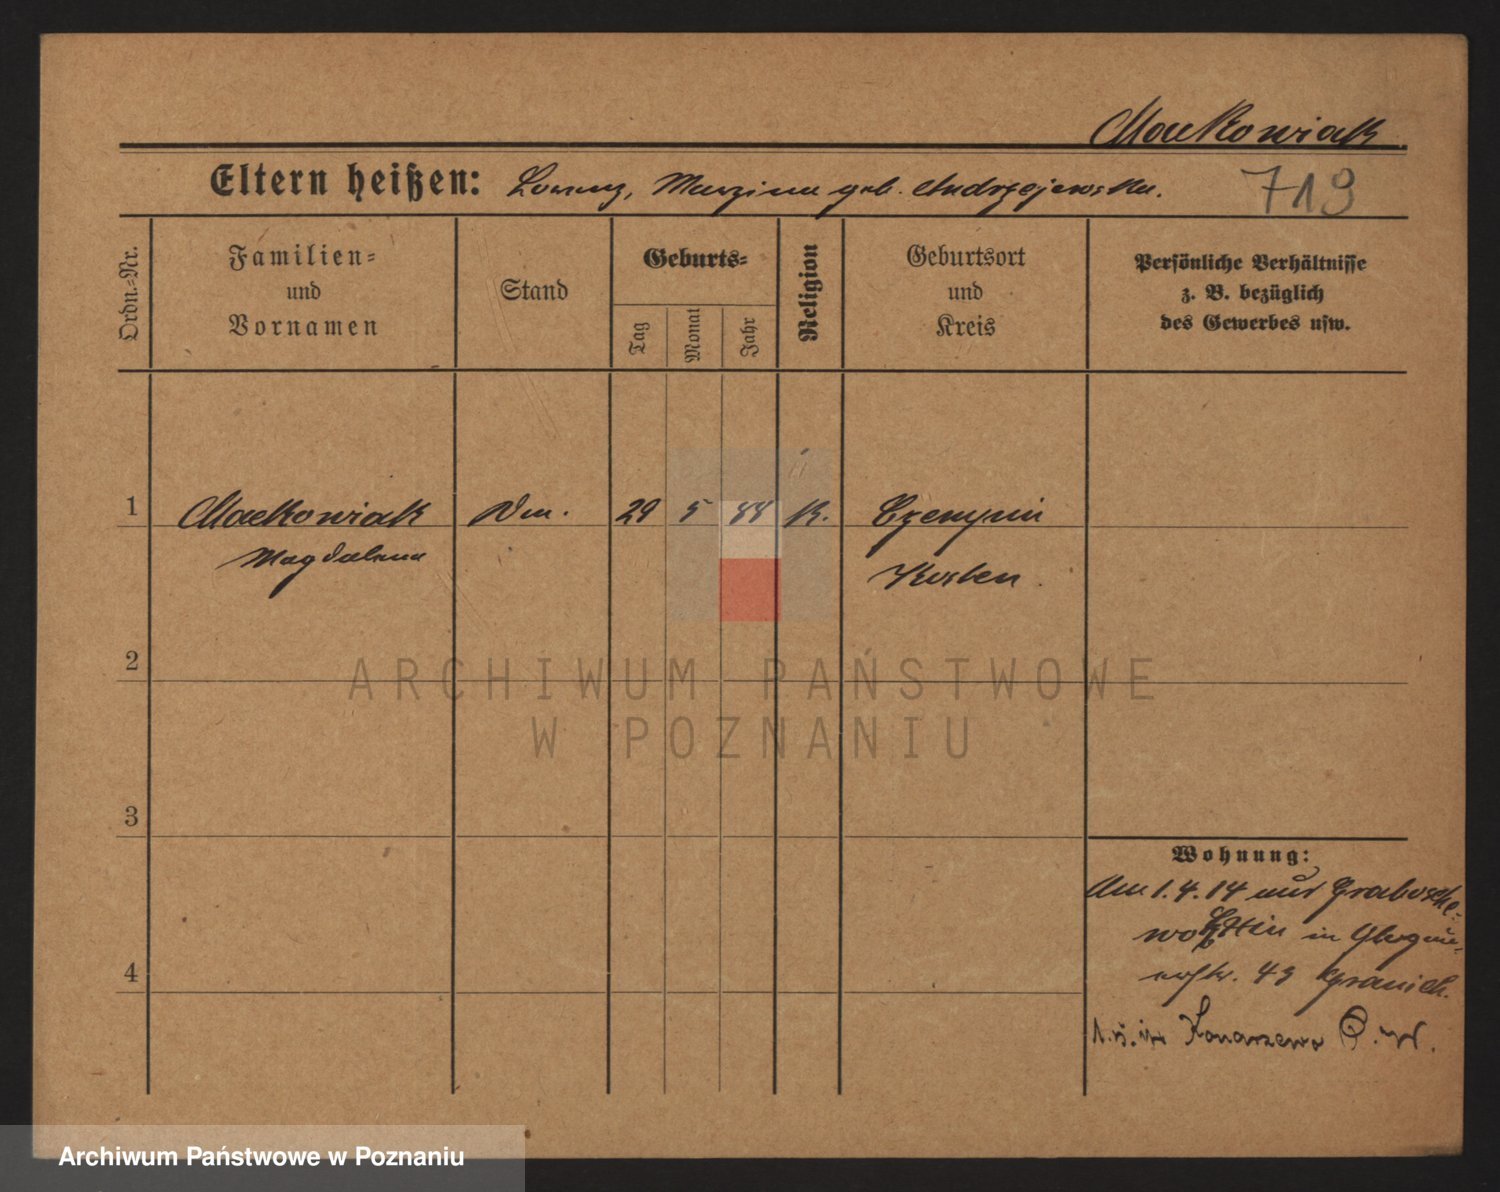 Maćkowiak
Eltern heißen: Lorenz, Marzina geb. Andrzejewska.
719
Ordn.-Nr.
Familien-
und
Vornamen
Stand
Geburts-
Tag
Monat
Jahr
Religion
Geburtsort
und
Kreis
Persönliche Verhältnisse
z. B. bezüglich
des Gewerbes usw.
1
Maćkowiak
Magdalena
Dm.
29
5
88
K.
Czempin
Kosten
2
ARCHIWUM PAŃSTWOWE
W POZNANIU
3
Wohnung:
Am 1.4.14 aus
in Glogau-
43
4
Konarzewo P.W.
Archiwum Państwowe w Poznaniu